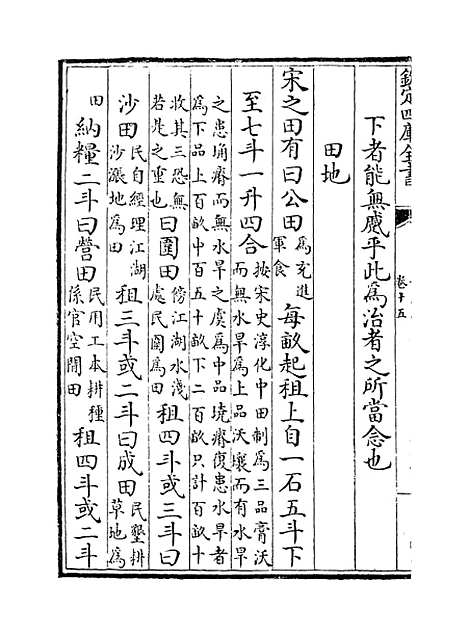 欽定四庫全書
卷十五
下者能無慼乎此為治者之所當念也
田地
宋之田有曰公田為充進軍食每畝起租上自一石五斗下
至七斗一升四合按宋史淳化中田制為三品膏沃而無水旱為上品沃壤而有水旱
之患埆瘠而無水旱之虞為中品墝瘠復患水旱者為下品上百畝中百五十畝下二百畝只計百畝十
收其三恐無若是之重也曰圍田傍江湖水淺處民圍為田租四斗或三斗曰
沙田民自經理江湖沙漲地為田租三斗或二斗曰成田民墾耕草地為
田納糧二斗曰營田民用工本耕種係官空閒田租四斗或二斗